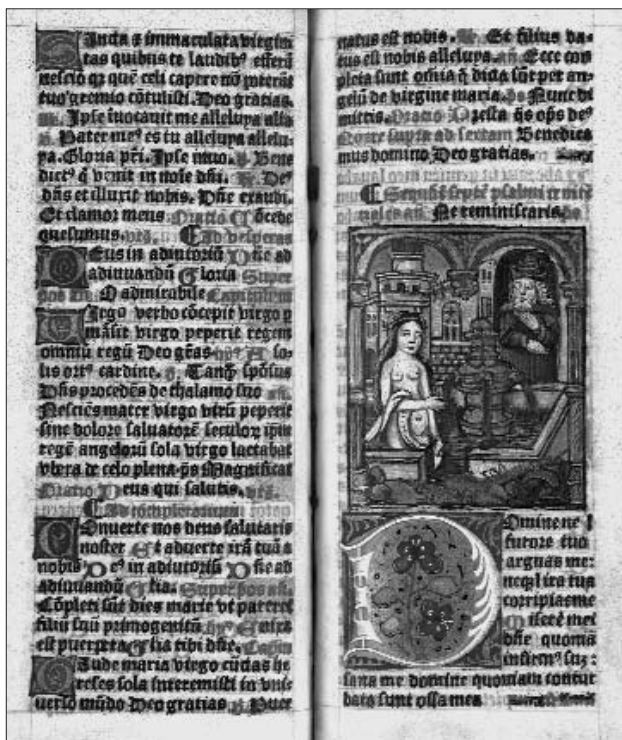 Ancta & immaculata virgini
tas quibus te laudib⁹ efferā
nescio qr quē celi capere nō poterāt
tuo gremio cōtulisti. Deo gratias.
Ipse inuocauit me alleluya alla
Pater me⁹ es tu alleluya allelu-
ya. Gloria pri. Ipse inuo. Bene
dict⁹ q̄ venit in noīe dñi. De⁹
dñs et illuxit nobis. Dñe exaudi.
Et clamor meus Oratio Cōcede
quesumus. Ad vesperas
Eus in adiutoriū Dñe ad
adiuuandū Gloria Super
pos O admirabile Capitulum
Irgo verbo cōcepit virgo p
māsit virgo peperit regem
omniū regū Deo grās A so-
lis ort⁹ cardine. Tanq̄ spōsus
Dñs procedēs de thalamo suo
Nesciēs mater virgo virū peperit
sine dolore saluatorē seculor ipm
regē angelorū sola virgo lactabat
vbera de celo plena. ps Magnificat
Oratio Deus qui salutis.
Ad completorium
Onuerte nos deus salutaris
noster Et aduerte irā tuā a
nobis De⁹ in adiutoriū Dñe ad
adiuuandū Glia. Super pos añ.
Cōpleti sūt dies marie vt pareret
filiū suū primogenitū Enixa
est puerpera Glia tibi dñe. Capitu
Aude maria virgo cūctas he
reses sola interemisti in vni-
uerso mūdo Deo gratias Puer
natus est nobis. Et filius da-
tus est nobis alleluya. añ Ecce com
pleta sunt omīa q̄ dicta sūt per an-
gelū de virgine maria. ps Nunc di
mittis. Oratio Larella q̄s oṗs de⁹
Nōtre supra ad sextam Benedica
mus domino Deo gratias.
Sequūt septē psalmi
Ne reminiscaris.
Omine ne ī
furore tuo
arguas me:
neqꝫ ira tua
corripias me
Miserē mei
dñe quoniā
infirm⁹ suꝫ:
sana me domine quoniam contur
bata sunt ossa mea